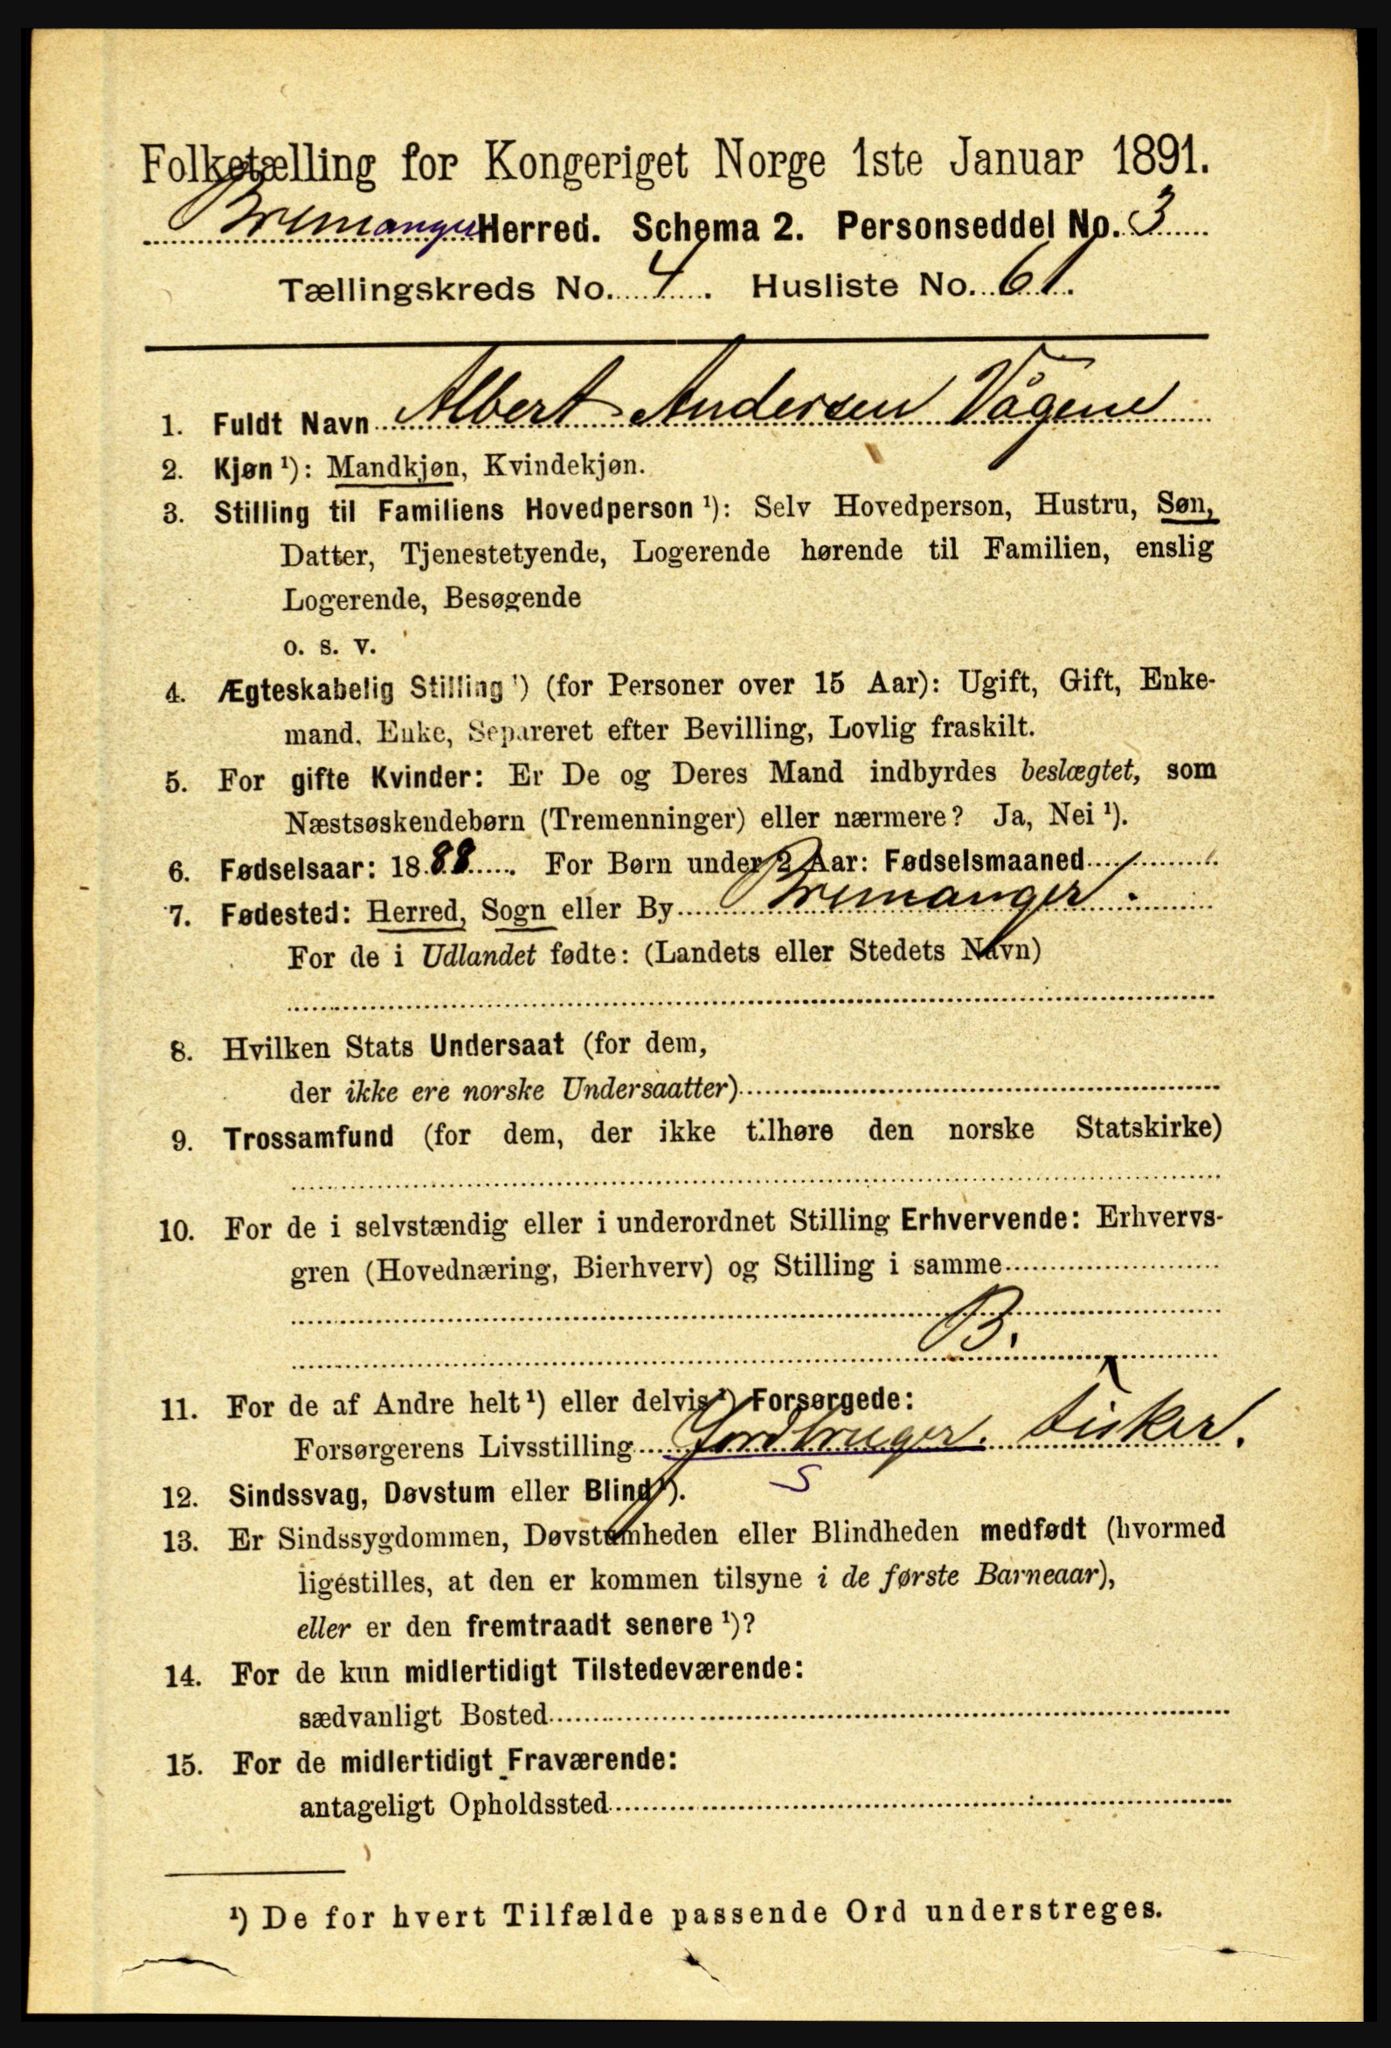 Folketælling for Kongeriget Norge 1ste Januar 1891.
Bremanger Herred. Schema 2. Personseddel No. 3
Tællingskreds No. 4. Husliste No. 61.
1. Fuldt Navn Albert Andersen Vågene
2. Kjøn ¹): Mandkjøn, Kvindekjøn.
3. Stilling til Familiens Hovedperson ¹): Selv Hovedperson, Hustru, Søn,
Datter, Tjenestetyende, Logerende hørende til Familien, enslig
Logerende, Besøgende
o. s. v.
4. Ægteskabelig Stilling ¹) (for Personer over 15 Aar): Ugift, Gift, Enke-
mand, Enke, Separeret efter Bevilling, Lovlig fraskilt.
5. For gifte Kvinder: Er De og Deres Mand indbyrdes beslægtet, som
Næstsøskendebørn (Tremenninger) eller nærmere? Ja, Nei ¹).
6. Fødselsaar: 1888. For Børn under 2 Aar: Fødselsmaaned
7. Fødested: Herred, Sogn eller By Bremanger.
For de i Udlandet fødte: (Landets eller Stedets Navn)
8. Hvilken Stats Undersaat (for dem,
der ikke ere norske Undersaatter)
9. Trossamfund (for dem, der ikke tilhøre den norske Statskirke)
10. For de i selvstændig eller i underordnet Stilling Erhvervende: Erhvervs-
gren (Hovednæring, Bierhverv) og Stilling i samme
B.
11. For de af Andre helt ¹) eller delvis ¹) Forsørgede:
Forsørgerens Livsstilling Jordbruger. Fisker.
S
12. Sindssvag, Døvstum eller Blind ¹).
13. Er Sindssygdommen, Døvstumheden eller Blindheden medfødt (hvormed
ligestilles, at den er kommen tilsyne i de første Barneaar),
eller er den fremtraadt senere ¹)?
14. For de kun midlertidigt Tilstedeværende:
sædvanligt Bosted
15. For de midlertidigt Fraværende:
antageligt Opholdssted
¹) De for hvert Tilfælde passende Ord understreges.